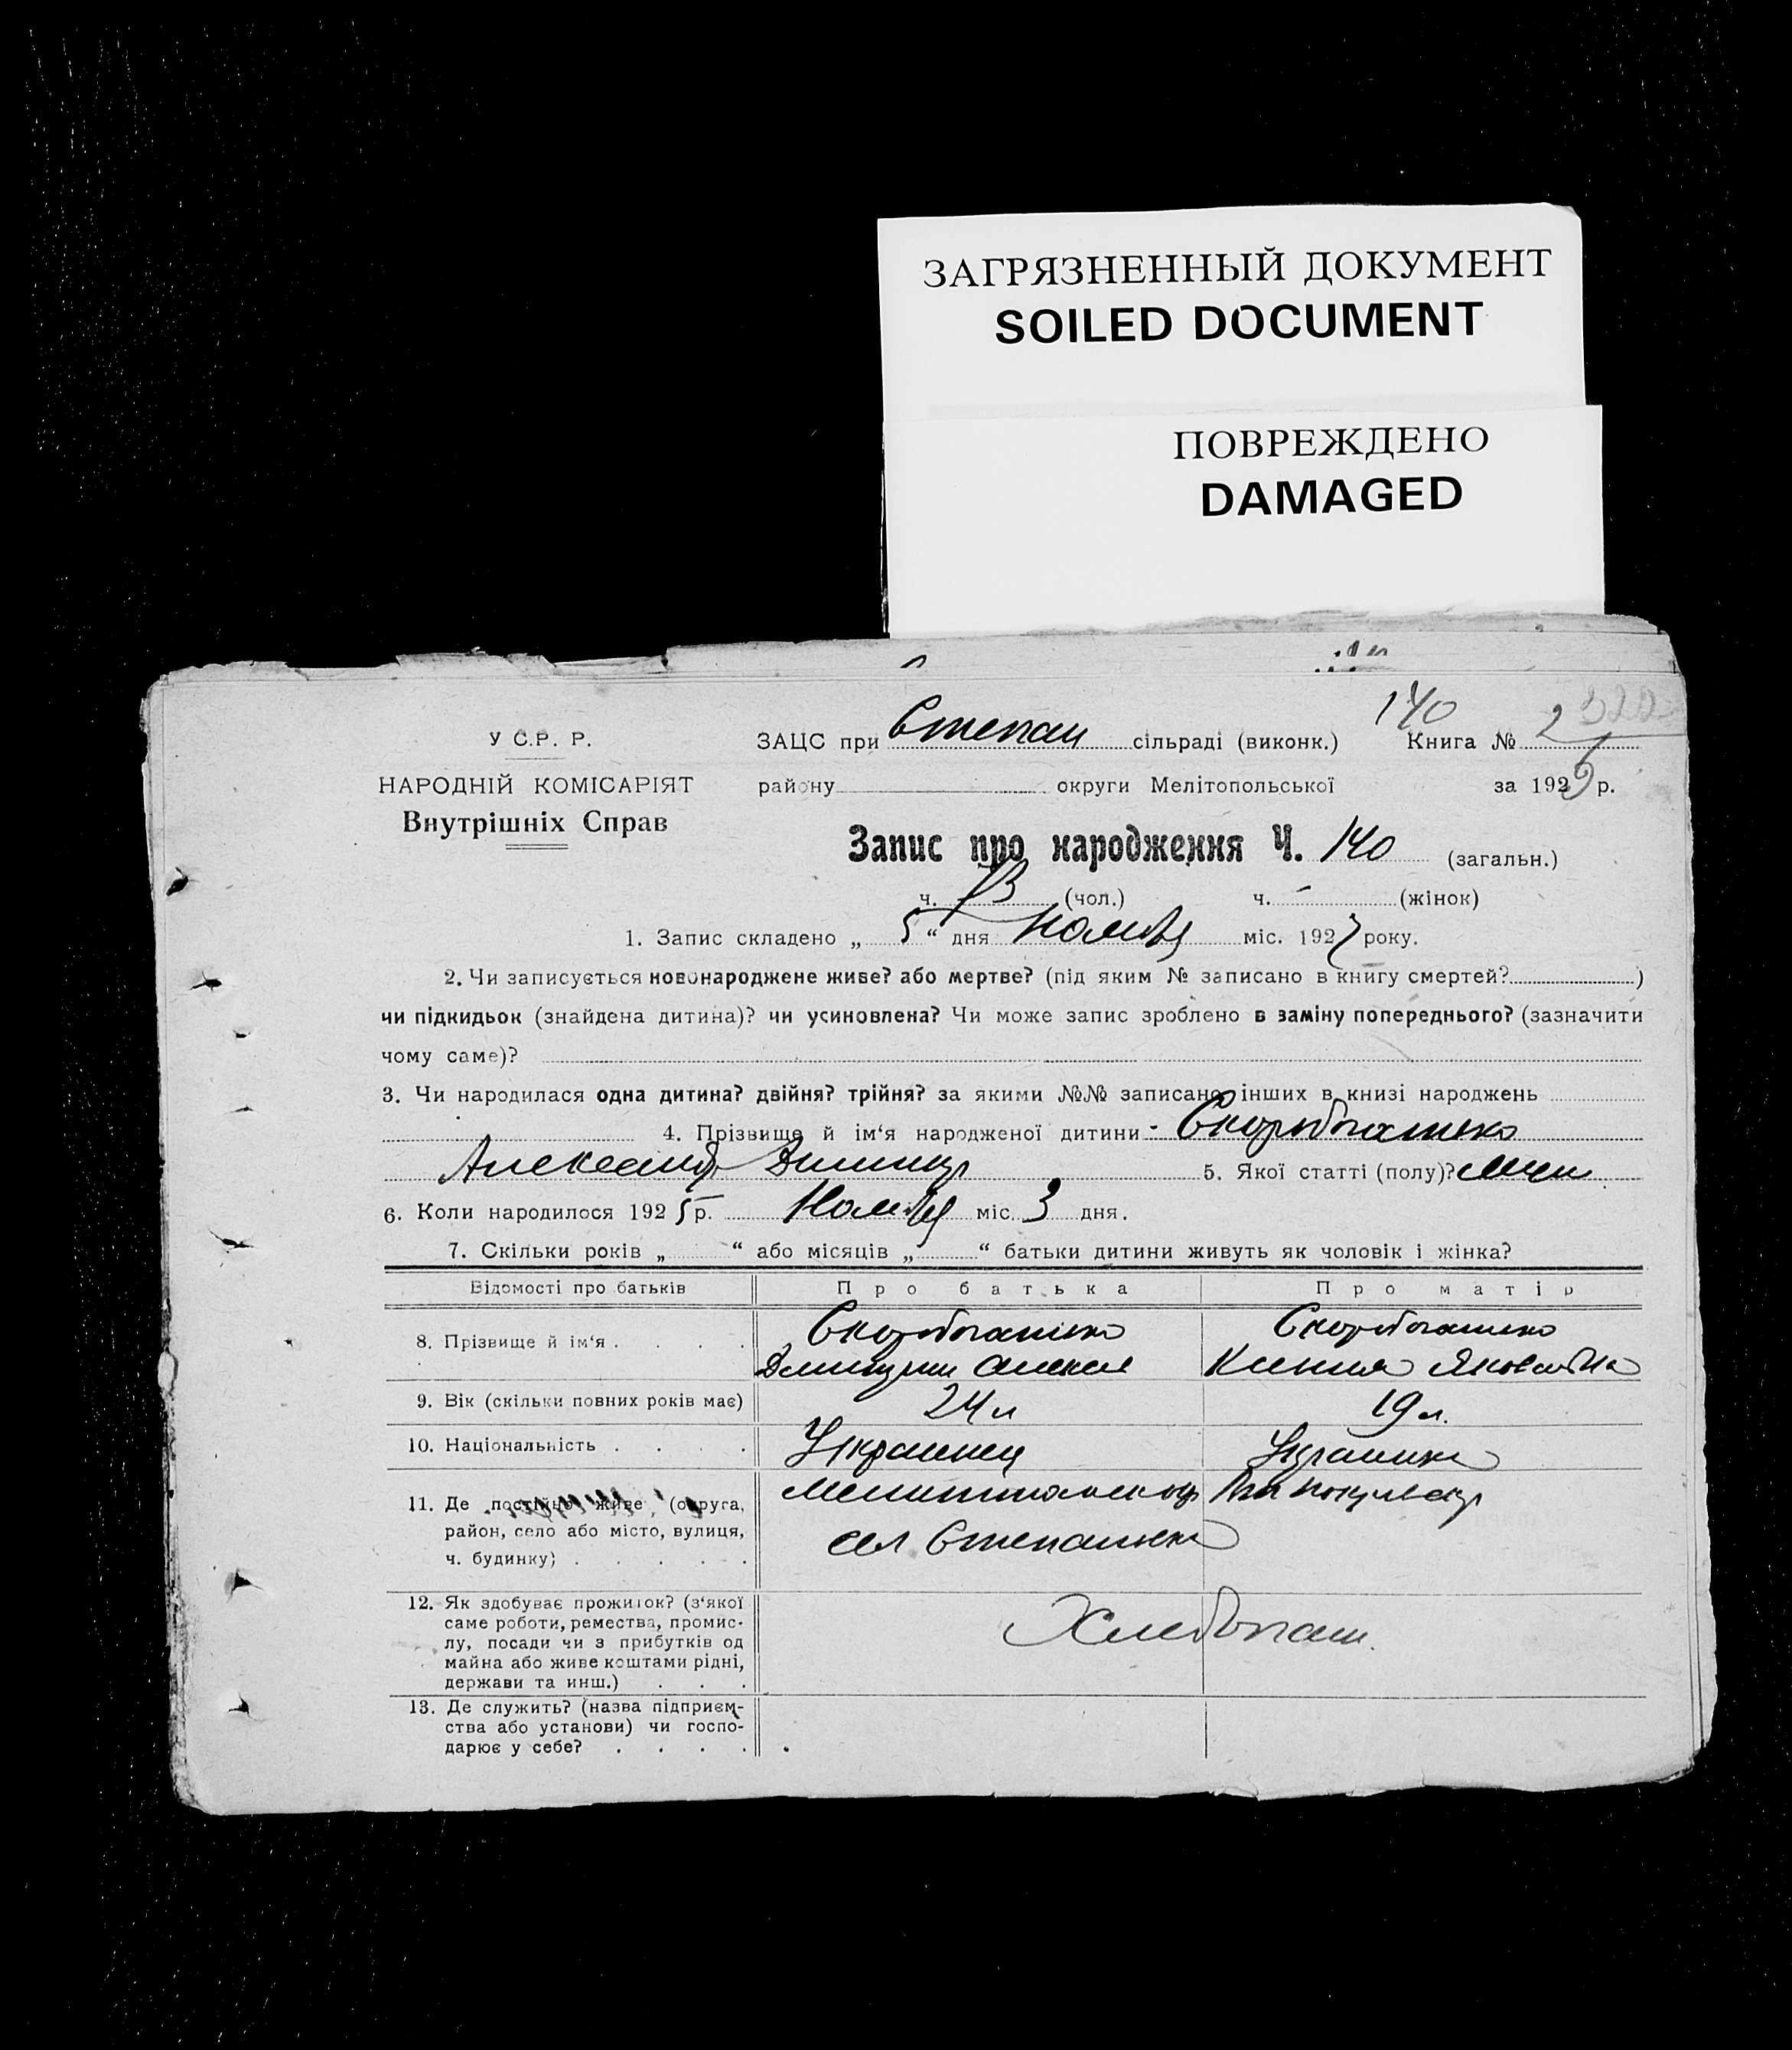 ЗАГРЯЗНЕННЫЙ ДОКУМЕНТ
SOILED DOCUMENT
ПОВРЕЖДЕНО
DAMAGED
140
У С.Р. Р.
ЗАЦС при Степан сільраді (виконк.) Книга № 2
НАРОДНІЙ КОМІСАРІЯТ
району округи Мелітопольської за 1925 р.
Внутрішніх Справ
Запис про народження Ч. 140 (загальн.)
ч. (чол.) ч. - (жінок)
1. Запис складено „ 5 “ дня Ноября міс. 192 року.
2. Чи записується новонароджене живе? або мертве? (під яким № записано в книгу смертей? )
чи підкидьок (знайдена дитина)? чи усиновлена? Чи може запис зроблено в заміну попереднього? (зазначити
чому саме)?
3. Чи народилася одна дитина? двійня? трійня? за якими №№ записано інших в книзі народжень
4. Прізвище й ім‘я народженої дитини - Скоробогатько
Александр Димитр 5. Якої статті (полу)? муж
6. Коли народилося 1925 р. Ноября міс. 3 дня.
7. Скільки років „ “ або місяців „ “ батьки дитини живуть як чоловік і жінка?
Відомості про батьків Про батька Про матір
8. Прізвище й ім‘я . . . . Скоробогатько Скоробогатько
Димитрий Алексея Ксения Яковлевна
9. Вік (скільки повних років має) 24 л 19 л.
10. Національність . . . . Украинец Украинка
11. Де постійно живе (округа, Мелитопольскир
район, село або місто, вулиця, сел Степановка
ч. будинку) . . . . .
12. Як здобуває прожиток? (з‘якої
саме роботи, ремества, промис-
лу, посади чи з прибутків од Хлебопаш.
майна або живе коштами рідні,
держави та инш.) . . .
13. Де служить? (назва підприєм-
ства або установи) чи госпо-
дарює у себе? . . . .